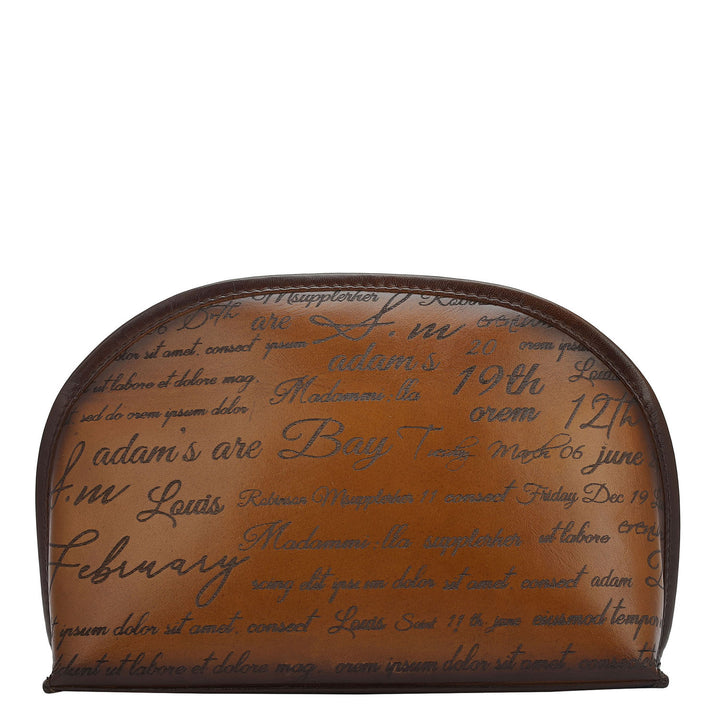 Msupplerher Robins
26 D.th are S.m
dolor sit amet, consect ipsum adam's 20 orem ipsum
ut labore et dolore mag, Madammu.lla 19th Louis
t sed do orem ipsum dolor orem 12th
adam's are Bay March 06 june
S.m Louis Robinson Msupplerher 11 consect Friday Dec 19
February Madammu.lla supplerher ut labore
scing elit ipsum dolor sit amet, consect adam
ipsum dolor sit amet, consect Louis Scint 11 th june eiusmod tempor
didunt ut labore et dolore mag, orem ipsum dolor sit amet, consect